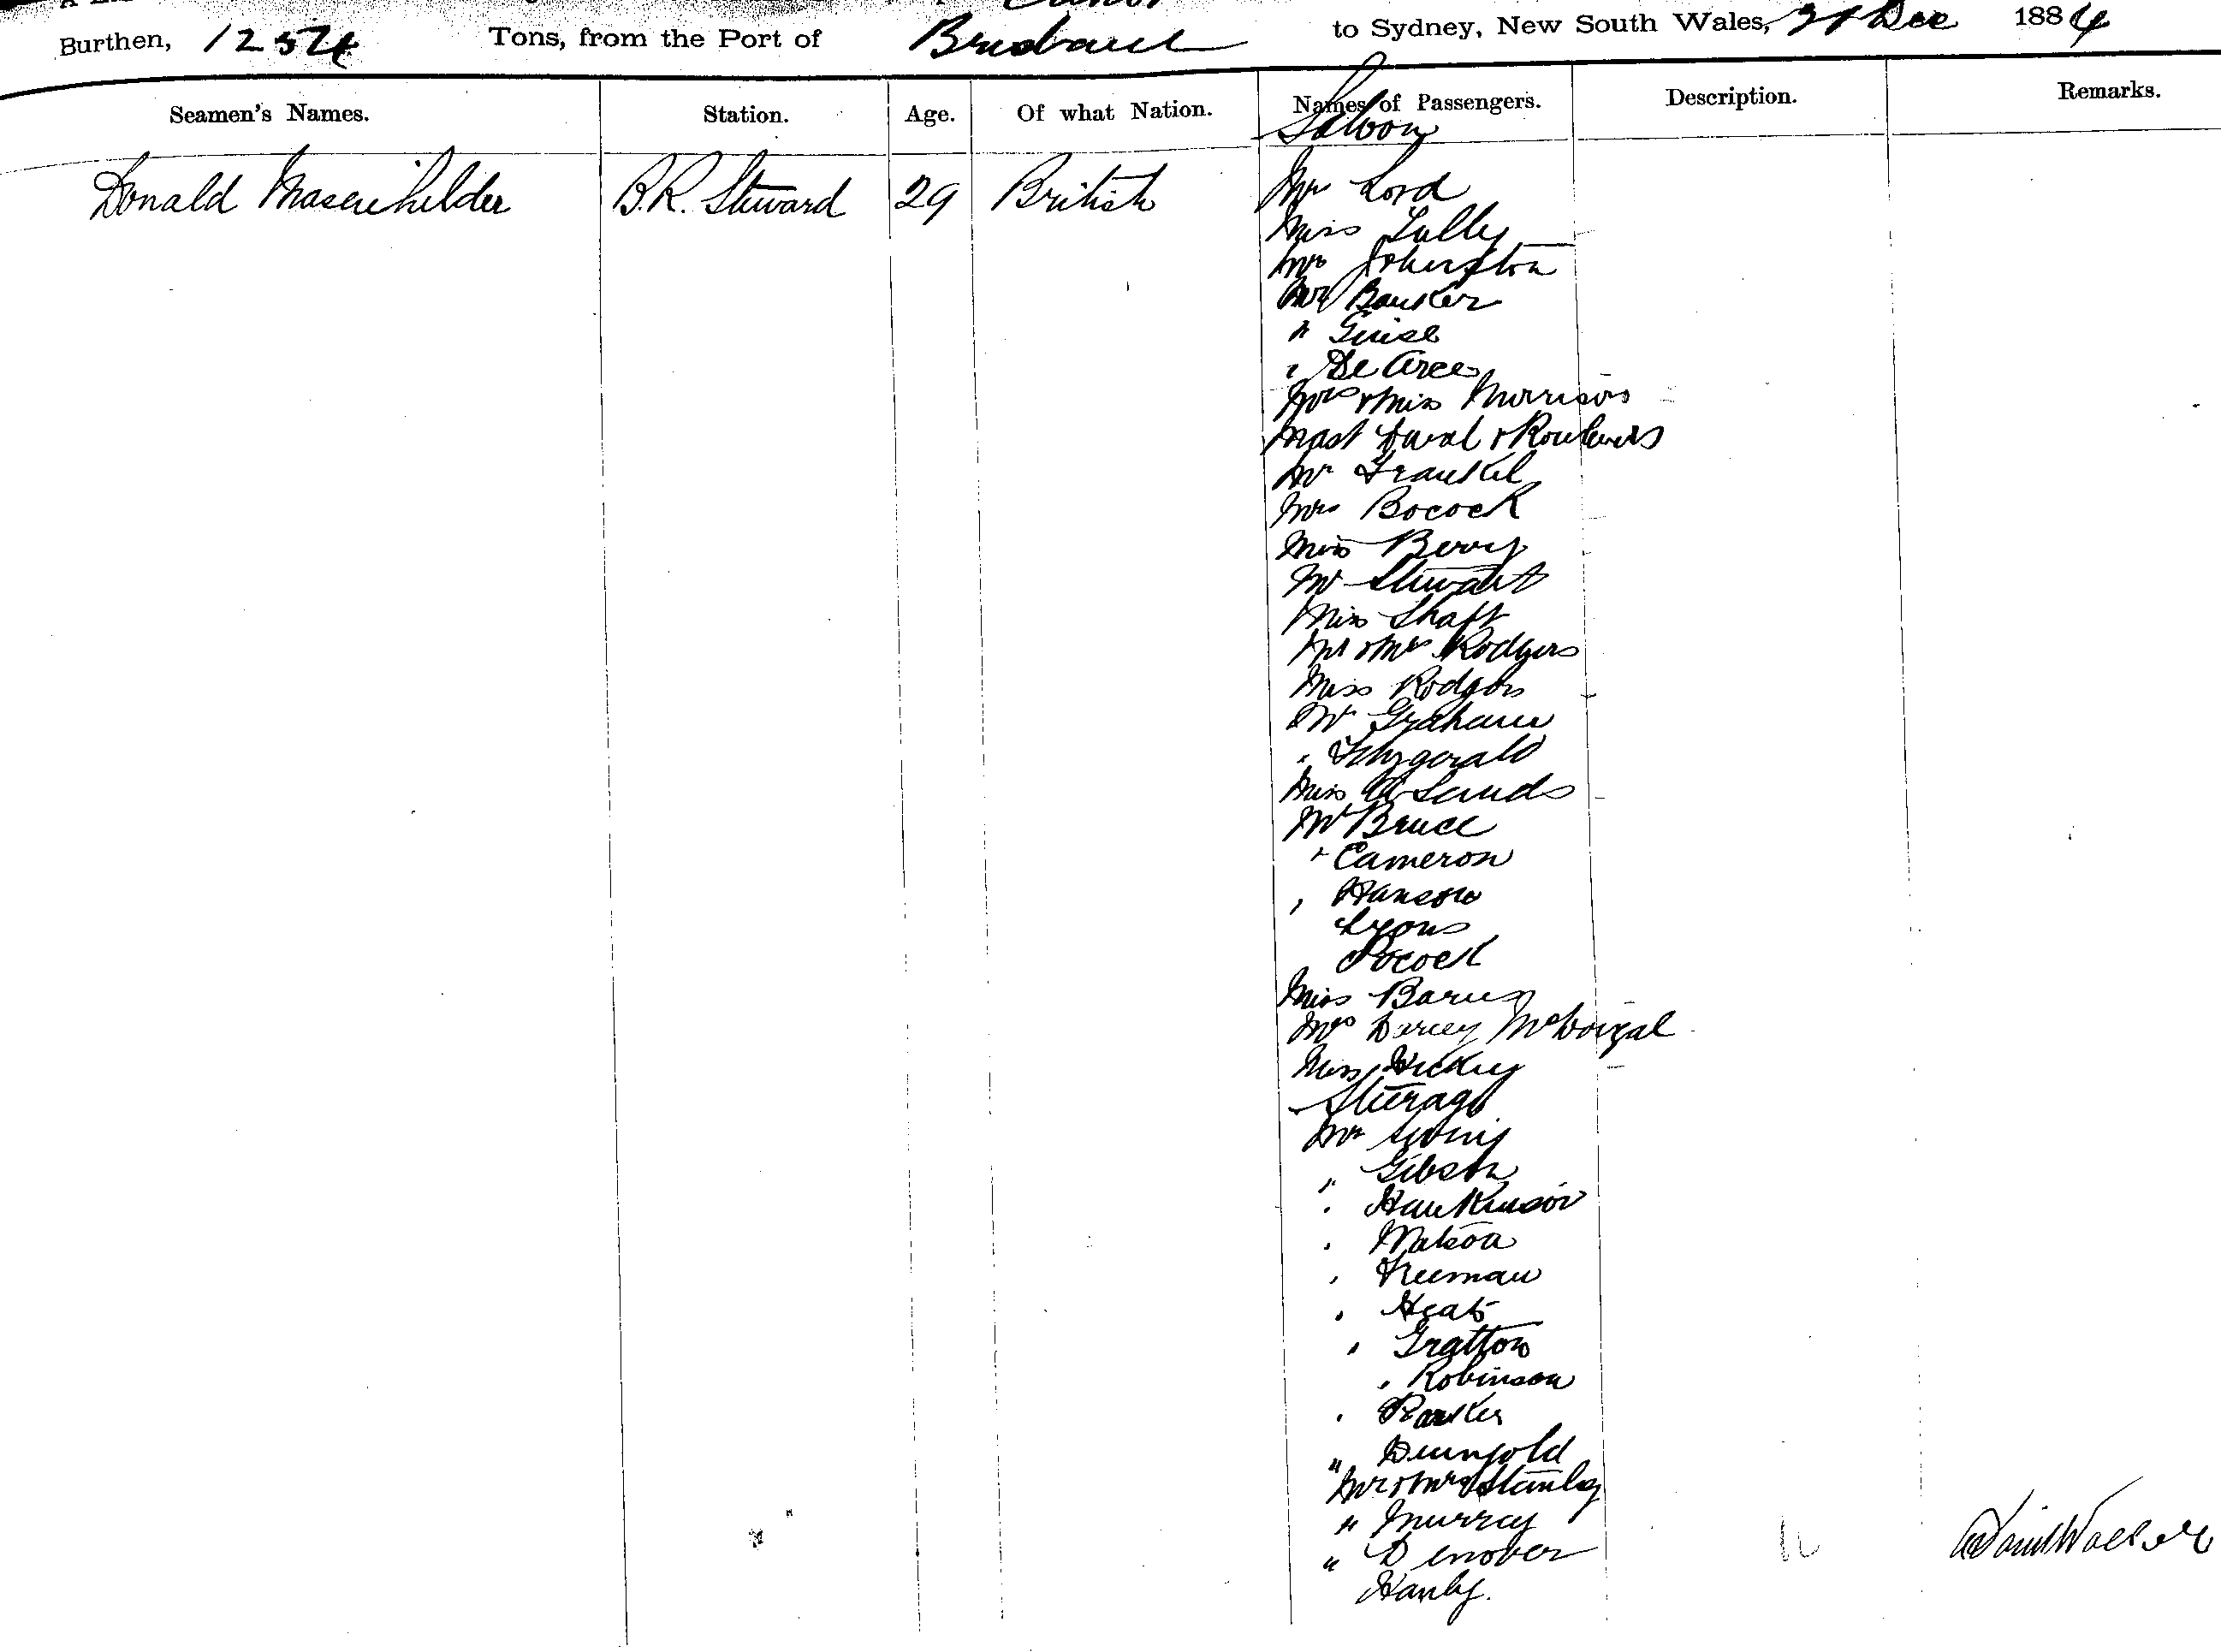 Burthen, 1254 Tons, from the Port of Brisbane to Sydney, New South Wales, 31 Dec 1884
Seamen's Names. Station. Age. Of what Nation. Names of Passengers. Description. Remarks.
Saloon
Donald B.R. Steward 29 British Mr Lord
Miss Lully
Mr Johnston
Mr Banker
" Guise
" De Arce
Mrs & Miss Morrison
Mast &
Mr Frankel
Mrs Bocock
Miss Berry
Mr Stewart
Miss Shaft
Mr & Mrs Rodgers
Miss Rodgers
Mr Graham
" Fitzgerald
Miss Sands
Mr Bruce
" Cameron
" Hanson
Lyons
Pocock
Miss
Mrs Darcey McDougal
Miss Hickey
Steerage
Mr
" Gibson
" Hankinson
" Watson
" Freeman
"
" Gratton
" Robinson
" Parker
"
Mr & Mrs Stanley
" Murray
"
Hanly.